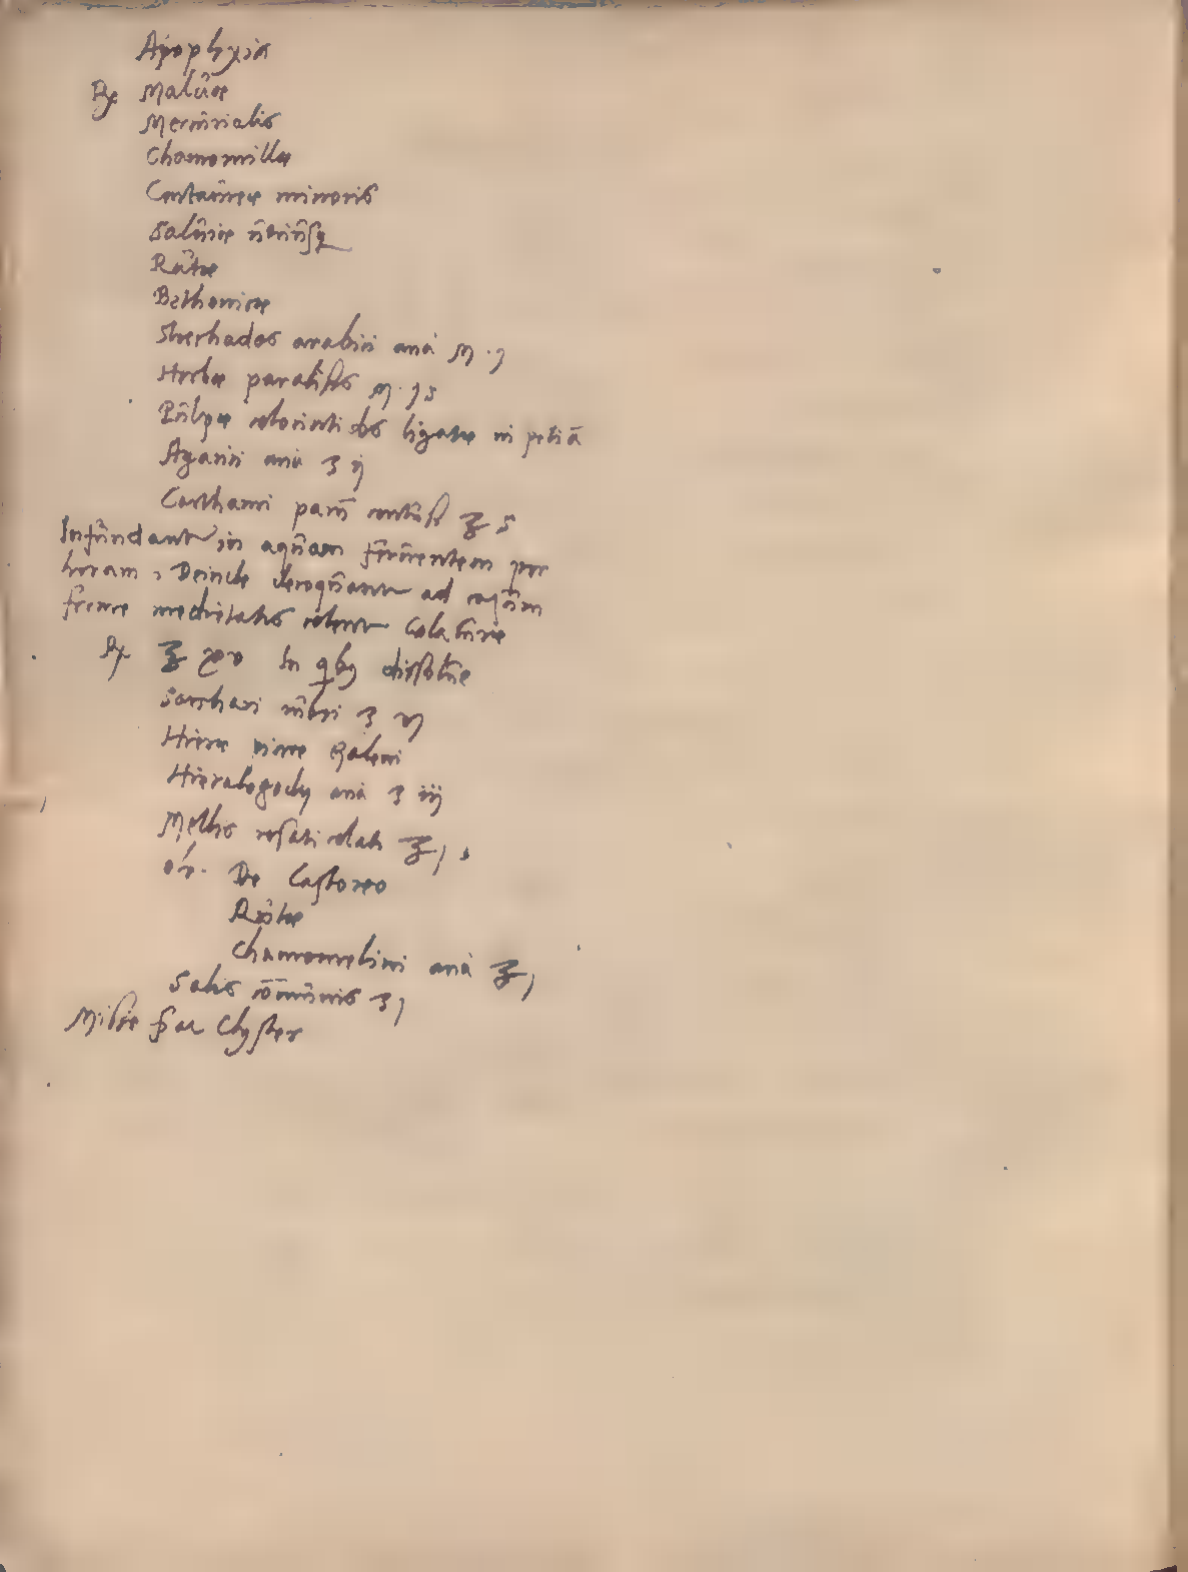 Apophyxia
℞ Malvae
Mercurialis
Chamomillae
Centaureae minoris
Salviae utriusq
Rutae
Bethonicae
Stechados arabici ana M. j
Herbae paralisis M. j s
Pulpae colocintidos ligatae in petiā
Agarici ana ʒ ij
Carthami parū contusi ℥ s
Infundantur in aquam ferventem per
horam, Deinde decoquantur ad
medietatis coletur Colaturae
℞ ℥ xv In qbꝫ dissolve
Sacchari rubri ʒ vj
Hierae picrae Galeni
Hieralogodij ana ʒ iij
Mellis rosati colati ℥ j s
ol. De Castoreo
Rutae
Chamomelini ana ℥ j
Salis cōmunis ʒ j
Misce fiat Clyster